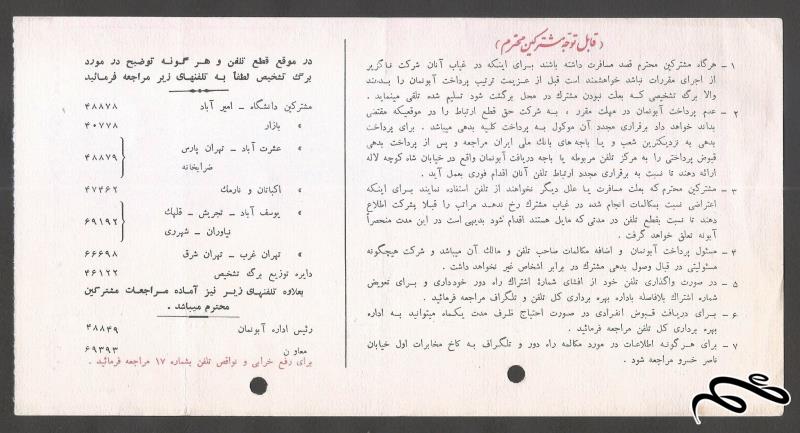 ( قابل توجه مشترکین محترم )
۱ – هرگاه مشترکین محترم قصد مسافرت داشته باشند بـرای اینکه در غیاب آنان شرکت ناگزیر
از اجرای مقررات نباشد خواهشمند است قبل از عـزیمت ترتیب پرداخت آبونمان را بـدهند
والا برگ تشخیصی کـه بعلت نبودن مشترك در محل برگشت شود تسلیم شده تلقی مینماید .
۲ – عدم پرداخت آبونمان در مهلت مقرر ، بـه شرکت حق قطع ارتباط را در موقعیکه مقتضی
بداند خواهد داد برقراری مجدد آن موکول بـه پرداخت کلیه بدهی میباشد . برای پرداخت
بدهی به نزدیکترین شعب و یـا باجه های بانك ملی ایران مراجعه و پس از پرداخت بدهی
قبوض پرداختی را به مرکز تلفن مربوطه یا باجه دریافت آبونمان واقع در خیابان شاه کوچه لاله
ارائه دهند تا نسبت به برقراری مجدد ارتباط تلفن آنان اقدام فوری بعمل آید .
۳ – مشترکین محترم که بعلت مسافرت یا علل دیگر نخواهند از تلفن استفاده نمایند برای اینکه
اعتراضی نسبت بمکالمات انجام شده در غیاب مشترك رخ ندهـد مراتب را قبلا بشرکت اطلاع
دهند تا نسبت بقطع تلفن در مدتی که مایل هستند اقدام شود بدیهی است در این مدت منحصراً
آبونه تعلق خواهد گرفت .
۴ – مسئول پرداخت آبونمان و اضافه مکالمات صاحب تلفن و مالك آن میباشد و شرکت هیچگونه
مسئولیتی در قبال وصول بدهی مشترك در برابر اشخاص غیر نخواهد داشت .
۵ – در صورت واگذاری تلفن خود از افشای شمارهٔ اشتراك راه دور خودداری و بـرای تعویض
شماره اشتراك بلافاصله باداره بهره برداری کل تلفن و تلگراف مراجعه فرمائید .
۶ – بـرای دریافت قبـوض انفرادی در صورت احتیاج ظرف مدت یکماه میتوانید بـه اداره
بهره برداری کل تلفن مراجعه فرمائید .
۷ – برای هـرگونه اطلاعات در مورد مکالمه راه دور و تلگراف به کاخ مخابرات اول خیابان
ناصر خسرو مراجعه شود .
در موقع قطع تلفن و هـر گـونه توضیح در مورد
برگ تشخیص لطفاً بـه تلفنهای زیر مراجعه فرمائید
مشترکین دانشگاه – امیر آباد ۴۸۸۷۸
» بازار ۴۰۷۷۸
» عشرت آباد – تهران پارس
ضرابخانه ۴۸۸۷۹
» اکباتان و نارمك ۴۷۴۶۲
» یوسف آباد – تجریش – قلهك
نیاوران – شهرری ۶۹۱۹۲
» تهران غرب – تهران شرق ۶۶۶۹۸
دایره توزیع برگ تشخیص ۴۶۱۲۲
بعلاوه تلفنهـای زیـر نیز آماده مـراجعـات مشترکین
محترم میباشد .
رئیس اداره آبونمان ۴۸۸۴۹
معاون ۶۹۳۹۳
برای رفع خرابی و نواقص تلفن بشماره ۱۷ مراجعه فرمائید .